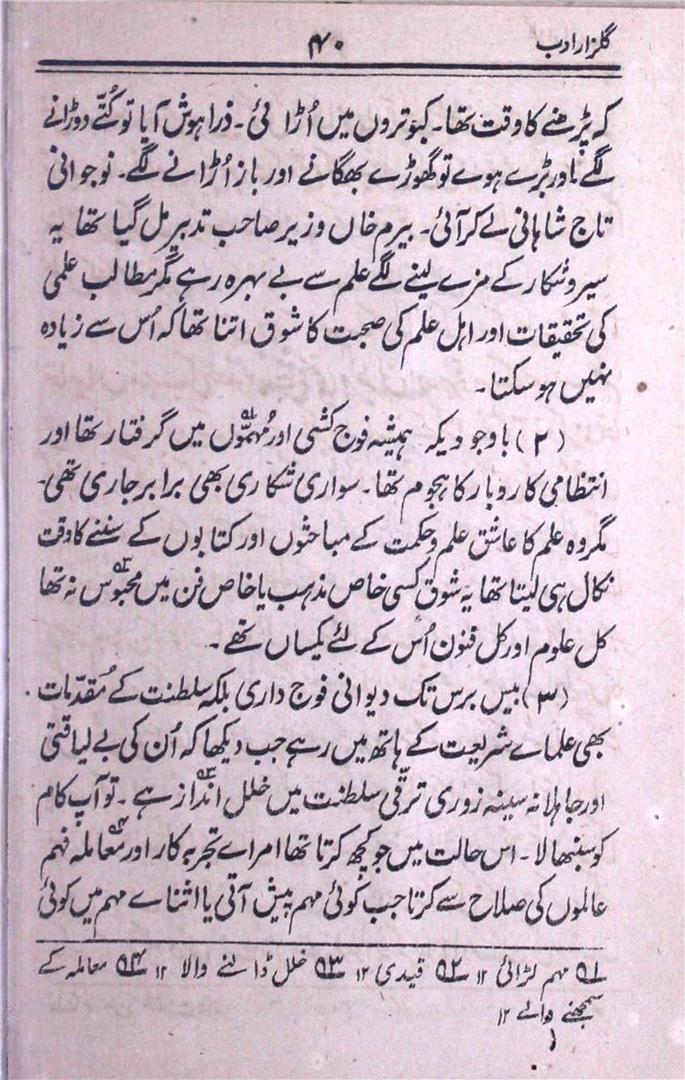 گلزار ادب
۴۰
کہ پڑھنے کا وقت تھا۔ کبوتروں میں اُڑائی۔ ذرا ہوش آیا تو کُتّے دوڑانے
لگے اور بڑے ہوے تو گھوڑے بھگانے اور باز اُڑانے لگے۔ نوجوانی
تاج شاہانی لے کر آئی۔ بیرم خاں وزیر صاحب تدبیر مل گیا تھا یہ
سیر و شکار کے مزے لینے لگے علم سے بے بہرہ رہے مگر مطالب علمی
کی تحقیقات اور اہل علم کی صحبت کا شوق اتنا تھا کہ اُس سے زیادہ
نہیں ہو سکتا۔
(۲) باوجودیکہ ہمیشہ فوج کشی اور مُہموں۵۱ میں گرفتار تھا اور
انتظامی کاروبار کا ہجوم تھا۔ سواری شکاری بھی برابر جاری تھی۔
مگر وہ علم کا عاشق علم و حکمت کے مباحثوں اور کتابوں کے سننے کا وقت
نکال ہی لیتا تھا یہ شوق کسی خاص مذہب یا خاص فن میں محبوس۵۲ نہ تھا
کل علوم اور کل فنون اُس کے لئے یکساں تھے۔
(۳) بیس برس تک دیوانی فوج داری بلکہ سلطنت کے مُقدّمات
بھی علماے شریعت کے ہاتھ میں رہے جب دیکھا کہ اُن کی بے لیاقتی
اور جاہلانہ سینہ زوری ترقّی سلطنت میں خلل انداز۵۳ ہے۔ تو آپ کام
کو سنبھالا۔ اس حالت میں جو کچھ کرتا تھا امراے تجربہ کار اور معاملہ۵۴ فہم
عالموں کی صلاح سے کرتا جب کوئی مہم پیش آتی یا اثناے مہم میں کوئی
۵۱ مہم لڑائی ۱۲ ۵۲ قیدی ۱۲ ۵۳ خلل ڈالنے والا ۱۲ ۵۴ معاملہ کے
سمجھنے والے ۱۲